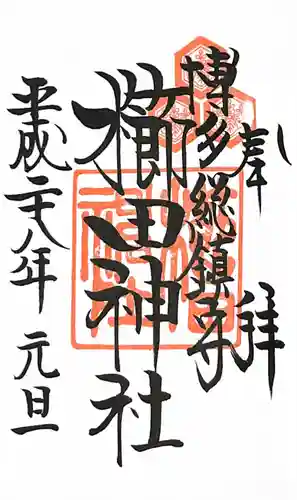 奉拝
博多総鎮守
櫛田神社
平成二十八年 元旦